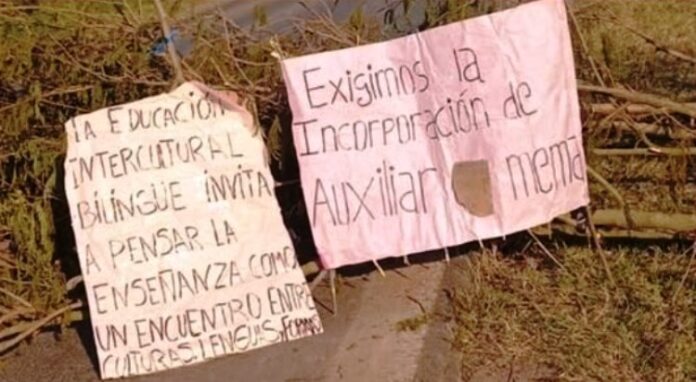 LA EDUCACIÓN
INTERCULTURAL
BILÍNGÜE INVITA
A PENSAR LA
ENSEÑANZA COMO
UN ENCUENTRO ENTRE
CULTURAS, LENGUAS, FORMAS
Exigimos la
Incorporación de
Auxiliar memá